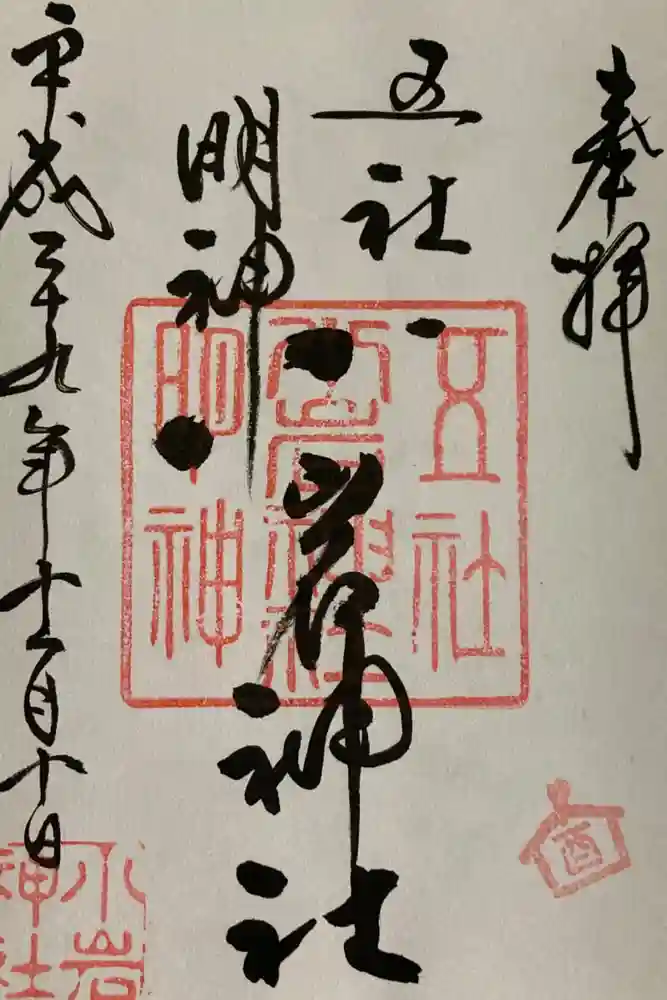 奉拝
五社
明神
小岩神社
平成二十九年十一月十日
五社
明神
小岩
神社
酉